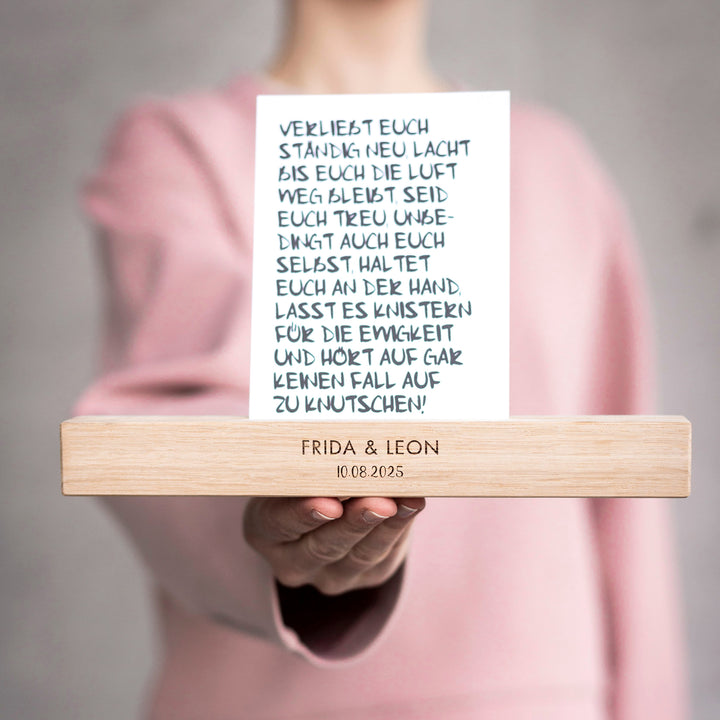 VERLIEBT EUCH
STÄNDIG NEU, LACHT
BIS EUCH DIE LUFT
WEG BLEIBT, SEID
EUCH TREU, UNBE-
DINGT AUCH EUCH
SELBST, HALTET
EUCH AN DER HAND,
LASST ES KNISTERN
FÜR DIE EWIGKEIT
UND HÖRT AUF GAR
KEINEN FALL AUF
ZU KNUTSCHEN!
FRIDA & LEON
10.08.2025